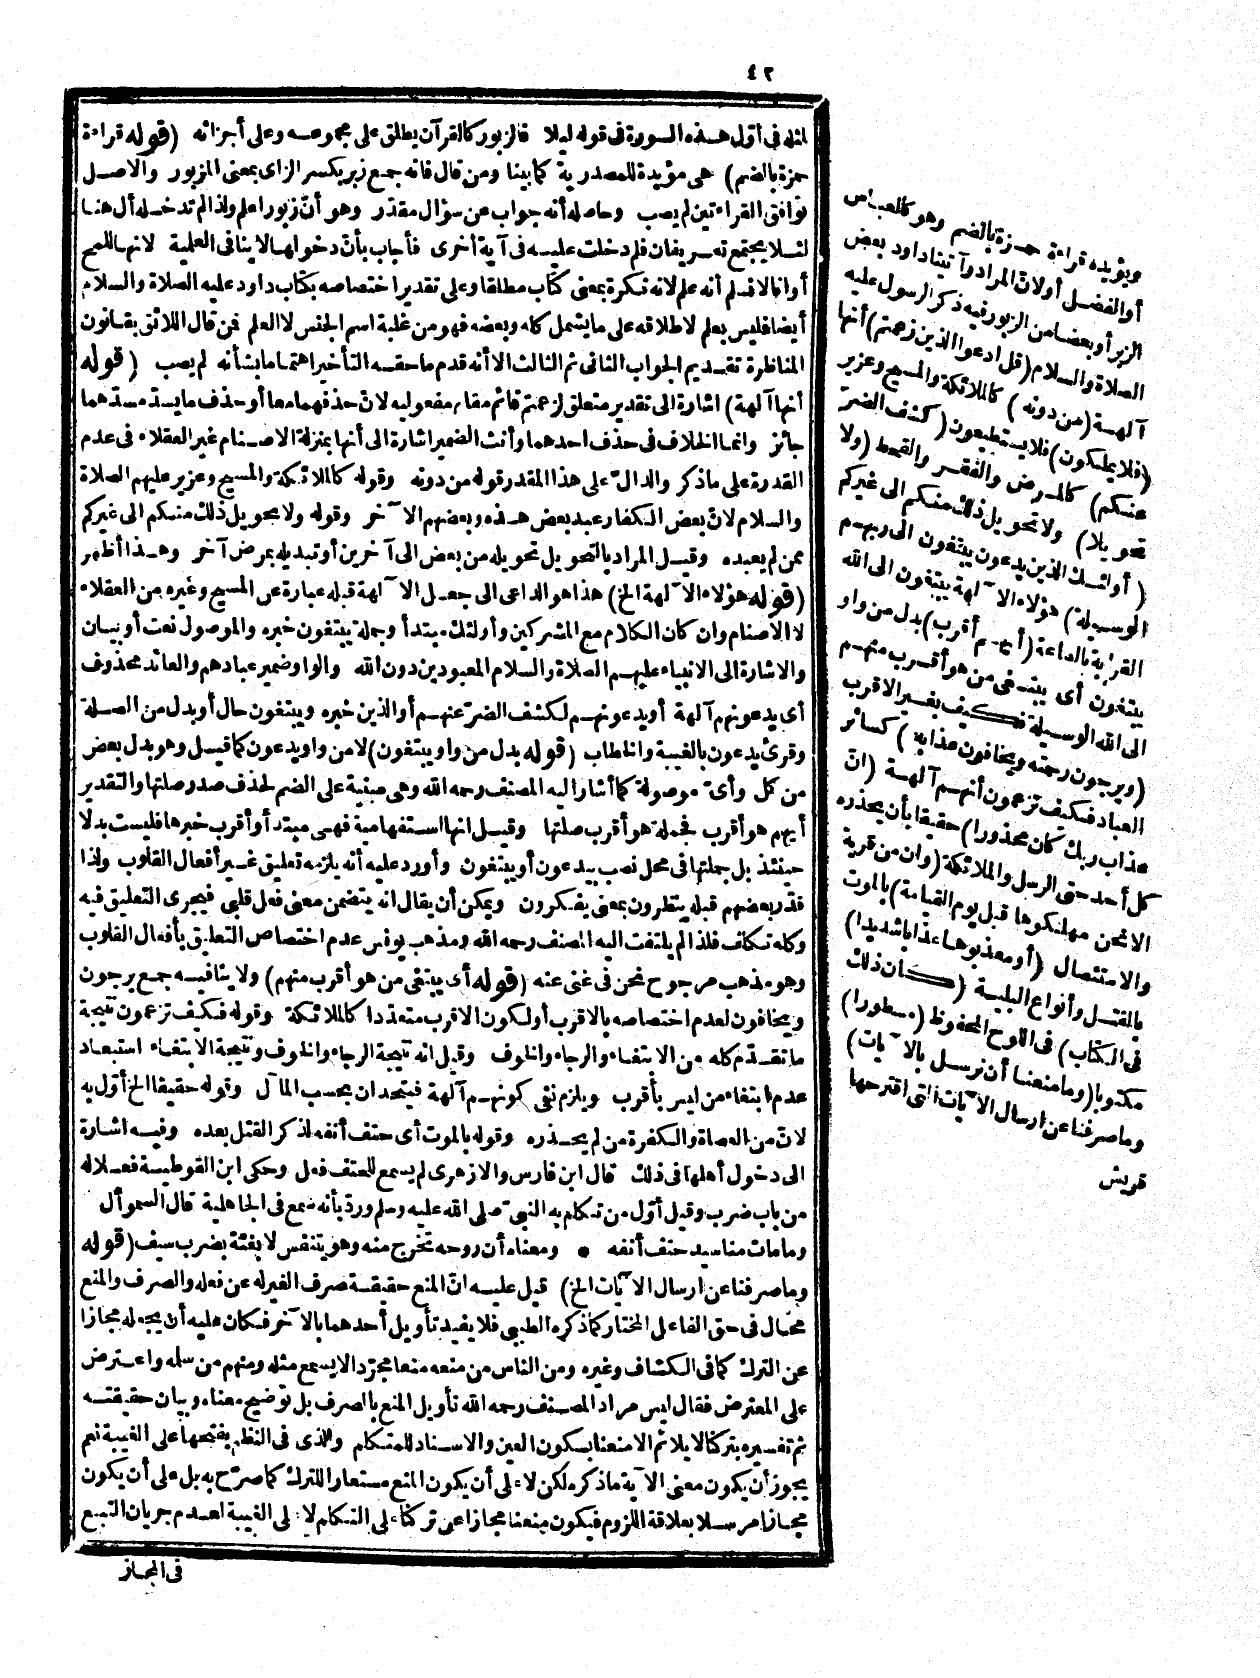 ٤٢
لمثله فى أوّل هذه السورة فى قوله ليلا فالزبور كالقرآن يطلق على مجموعه وعلى أجزائه (قوله قراءة
حمزة بالضم) هى مؤيدة للمصدرية كما بينا ومن قال فانه جمع زبر بكسر الزاى بمعنى المزبور والاصل
توافق القراءتين لم يصب وحاصله أنه جواب عن سؤال مقدّر وهو أنّ زبورا علم ولذا لم تدخله أل هنا
لئلا يجتمع تعريفان فلم دخلت عليه فى آية أخرى فأجاب بأنّ دخولها لا ينافى العلمية لانها للمح
أو انا لا نسلم أنه علم لانه نكرة بمعنى كتاب مطلقا وعلى تقدير اختصاصه بكتاب داود عليه الصلاة والسلام
أيضا فليس بعلم لاطلاقه على ما يشمل كله وبعضه فهو من غلبة اسم الجنس لا العلم فمن قال اللائق بقانون
المناظرة تقديم الجواب الثانى ثم الثالث الا أنه قدم ما حقه التأخير اهتماما بشأنه لم يصب (قوله
أنها آلهة) اشارة الى تقدير متعلق لزعمتم قائم مقام مفعوليه لانّ حذفهما معا أو حذف ما يسدّ مسدّهما
جائز وانما الخلاف فى حذف احدهما وأنث الضمير اشارة الى أنها بمنزلة الاصنام غير العقلاء فى عدم
القدرة على ما ذكر والدالّ على هذا المقدر قوله من دونه وقوله كالملائكة والمسيح وعزير عليهم الصلاة
والسلام لانّ بعض الكفار عبد بعض هذه وبعضهم الآخر وقوله ولا تحويل ذلك منكم الى غيركم
ممن لم يعبده وقيل المراد بالتحويل تحويله من بعض الى آخرين أو تبديله بمرض آخر وهذا أظهر
(قوله هؤلاء الآلهة الخ) هذا هو الداعى الى جعل الآلهة قبله عبارة عن المسيح وغيره من العقلاء
لا الاصنام وان كان الكلام مع المشركين وأولئك مبتدأ وجملة يبتغون خبره والموصول نعت أو بيان
والاشارة الى الانبياء عليهم الصلاة والسلام المعبودين دون الله والواو ضمير عبادهم والعائد محذوف
أى يدعونهم آلهة أو يدعونهم لكشف الضرّ عنهم أو الذين خبره ويبتغون حال أو بدل من الصلة
وقرئ يدعون بالغيبة والخطاب (قوله بدل من واو يبتغون) لا من واو يدعون كما قيل وهو بدل بعض
من كل وأىّ موصولة كما أشار اليه المصنف رحمه الله وهى مبنية على الضم لحذف صدر صلتها والتقدير
أيهم هو أقرب فجملة هو أقرب صلتها وقيل انها استفهامية فهى مبتدأ وأقرب خبرها فليست بدلا
حينئذ بل جملتها فى محل نصب بيدعون أو يبتغون وأورد عليه أنه يلزمه تعليق غير أفعال القلوب ولذا
قدّر بعضهم قبله ينظرون بمعنى يفكرون ويمكن أن يقال انه يتضمن معنى فعل قلبى فيجرى التعليق فيه
وكله تكلف فلذا لم يلتفت اليه المصنف رحمه الله ومذهب يونس عدم اختصاص التعليق بأفعال القلوب
وهو مذهب مرجوح نحن فى غنى عنه (قوله أى يبتغى من هو أقرب منهم) ولا ينافيه جمع يرجون
ويخافون لعدم اختصاصه بالاقرب أو لكون الاقرب متعدّدا كالملائكة وقوله فكيف تزعمون نتيجة
ما تقدّم كله من الابتغاء والرجاء والخوف وقيل انه نتيجة الرجاء والخوف ونتيجة الابتغاء استبعاد
عدم ابتغاء من ليس بأقرب ويلزم نفى كونهم آلهة فيتحدان بحسب المآل وقوله حقيقا الخ أوّل به
لانّ من العصاة والكفرة من لم يحذره وقوله بالموت أى حتف أنفه لذكر القتل بعده وفيه اشارة
الى دخول أهلها فى ذلك قال ابن فارس والازهرى لم يسمع للحتف فعل وحكى ابن القوطية فعلا له
من باب ضرب وقيل أوّل من تكلم به النبىّ صلى الله عليه وسلم وردّ بأنه سمع فى الجاهلية قال السموأل
وما مات منا سيد حتف أنفه • ومعناه أن روحه تخرج منه وهو يتنفس لا بغتة بضرب سيف (قوله
وما صرفنا عن ارسال الآيات الخ) قيل عليه انّ المنع حقيقة صرف الغير له عن فعله والصرف والمنع
محال فى حق الفاعل المختار كما ذكره الطيبى فلا يفيد تأويل أحدهما بالآخر فكان عليه أن يجعله مجازا
عن الترك كما فى الكشاف وغيره ومن الناس من منعه منعا مجرّدا لا يسمع مثله ومنهم من سلمه واعترض
على المعترض فقال ليس مراد المصنف رحمه الله تأويل المنع بالصرف بل توضيح معناه وبيان حقيقته
ثم تفسيره بتركنا لا يلائم الا منعنا بسكون العين والاسناد للمتكلم والذى فى النظم بفتحها على الغيبة نعم
يجوز أن يكون معنى الآية ما ذكره لكن لا على أن يكون المنع مستعارا للترك كما صرّح به بل على أن يكون
مجازا مرسلا بعلاقة اللزوم فيكون منعنا مجازا عن تركنا على التكلم لا على الغيبة لعدم جريان التبع
فى المجاز
ويؤيده قراءة حمزة بالضم وهو كالعباس
أو الفضل أو لانّ المراد وآتينا داود بعض
الزبر أو بعضا من الزبور فيه ذكر الرسول عليه
الصلاة والسلام (قل ادعوا الذين زعمتم) أنها
آلهة (من دونه) كالملائكة والمسيح وعزير
(فلا يملكون) فلا يستطيعون (كشف الضرّ
عنكم) كالمرض والفقر والقحط (ولا
تحويلا) ولا تحويل ذلك منكم الى غيركم
(أولئك الذين يدعون يبتغون الى ربهم
الوسيلة) هؤلاء الآلهة يبتغون الى الله
القرابة بالطاعة (أيهم أقرب) بدل من واو
يبتغون أى يبتغى من هو أقرب منهم
الى الله الوسيلة فكيف بغير الاقرب
(ويرجون رحمته ويخافون عذابه) كسائر
العباد فكيف تزعمون أنهم آلهة (انّ
عذاب ربك كان محذورا) حقيقا بأن يحذره
كل أحد حتى الرسل والملائكة (وان من قرية
الا نحن مهلكوها قبل يوم القيامة) بالموت
والاستئصال (أو معذبوها عذابا شديدا)
بالقتل وأنواع البلية (كان ذلك
فى الكتاب) فى اللوح المحفوظ (مسطورا)
مكتوبا (وما منعنا أن نرسل بالآيات)
وما صرفنا عن ارسال الآيات التى اقترحها
قريش